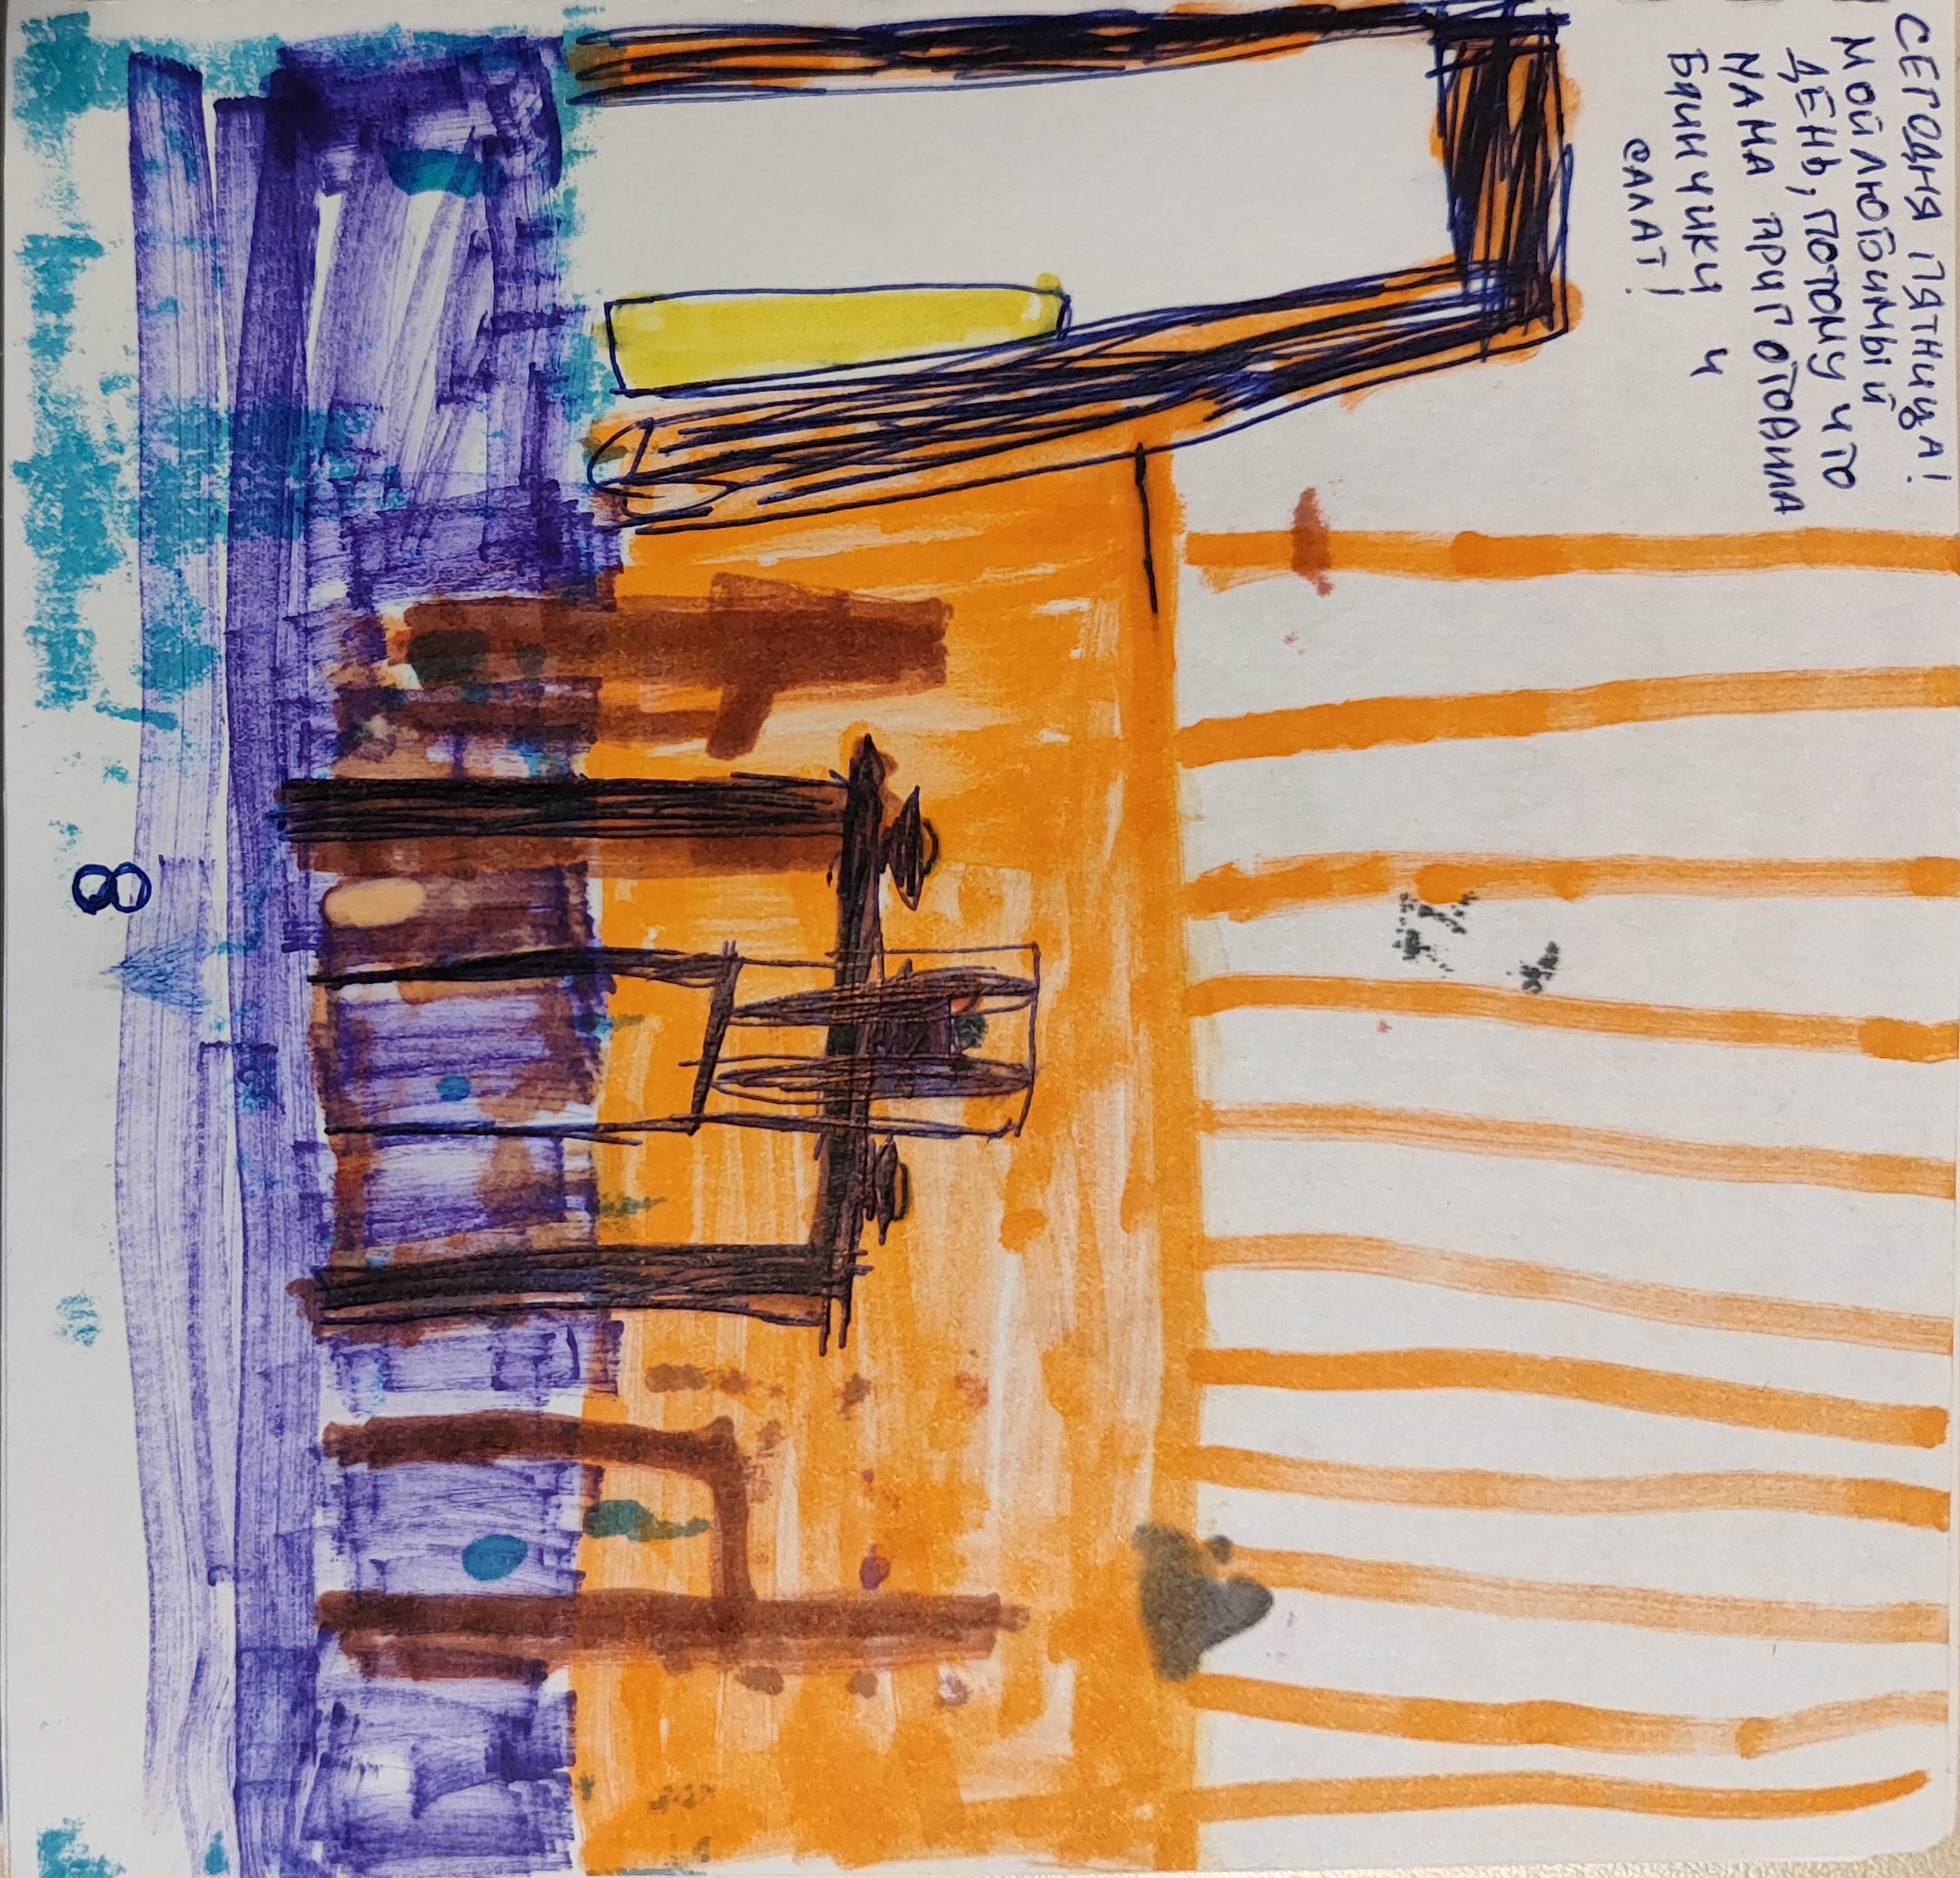 СЕГОДНЯ ПЯТНИЦА!
МОЙ ЛЮБИМЫЙ
ДЕНЬ, ПОТОМУ ЧТО
МАМА ПРИГОТОВИЛА
БЛИНЧИКИ И
САЛАТ!
8